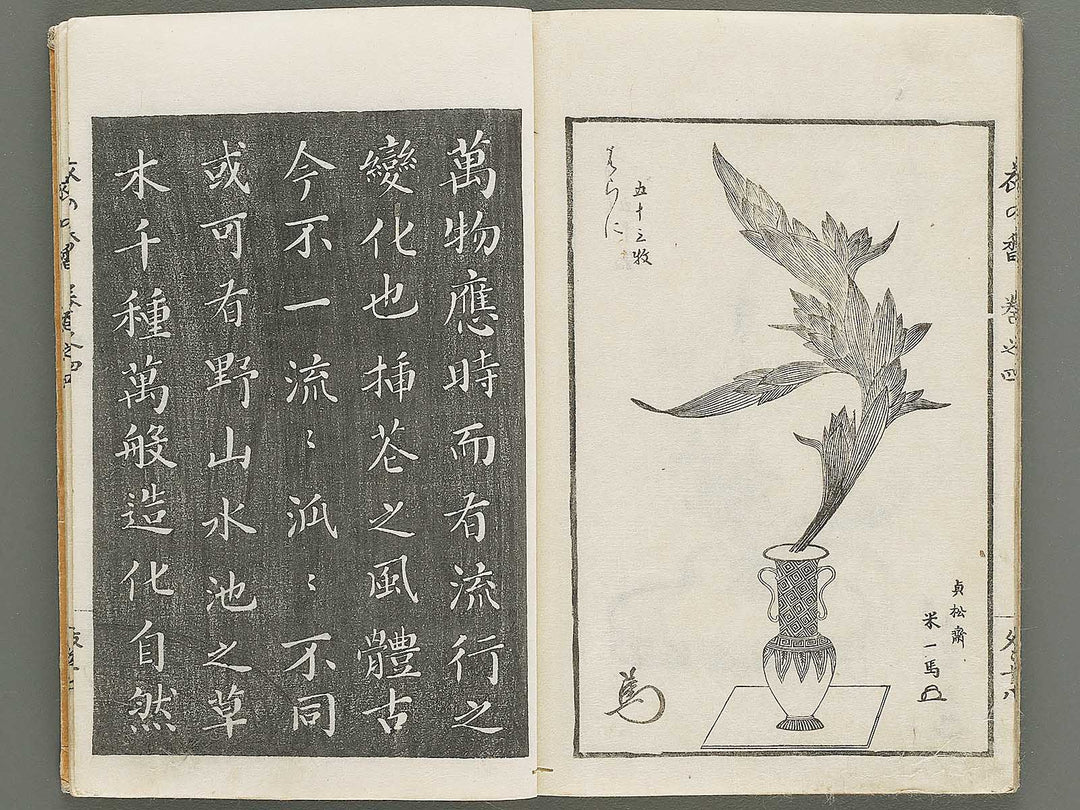 五十三枚
はらに
貞松齋
米一馬
萬物應時而有流行之
變化也插花之風體古
今不一流〻派〻不同
或可有野山水池之草
木千種萬般造化自然